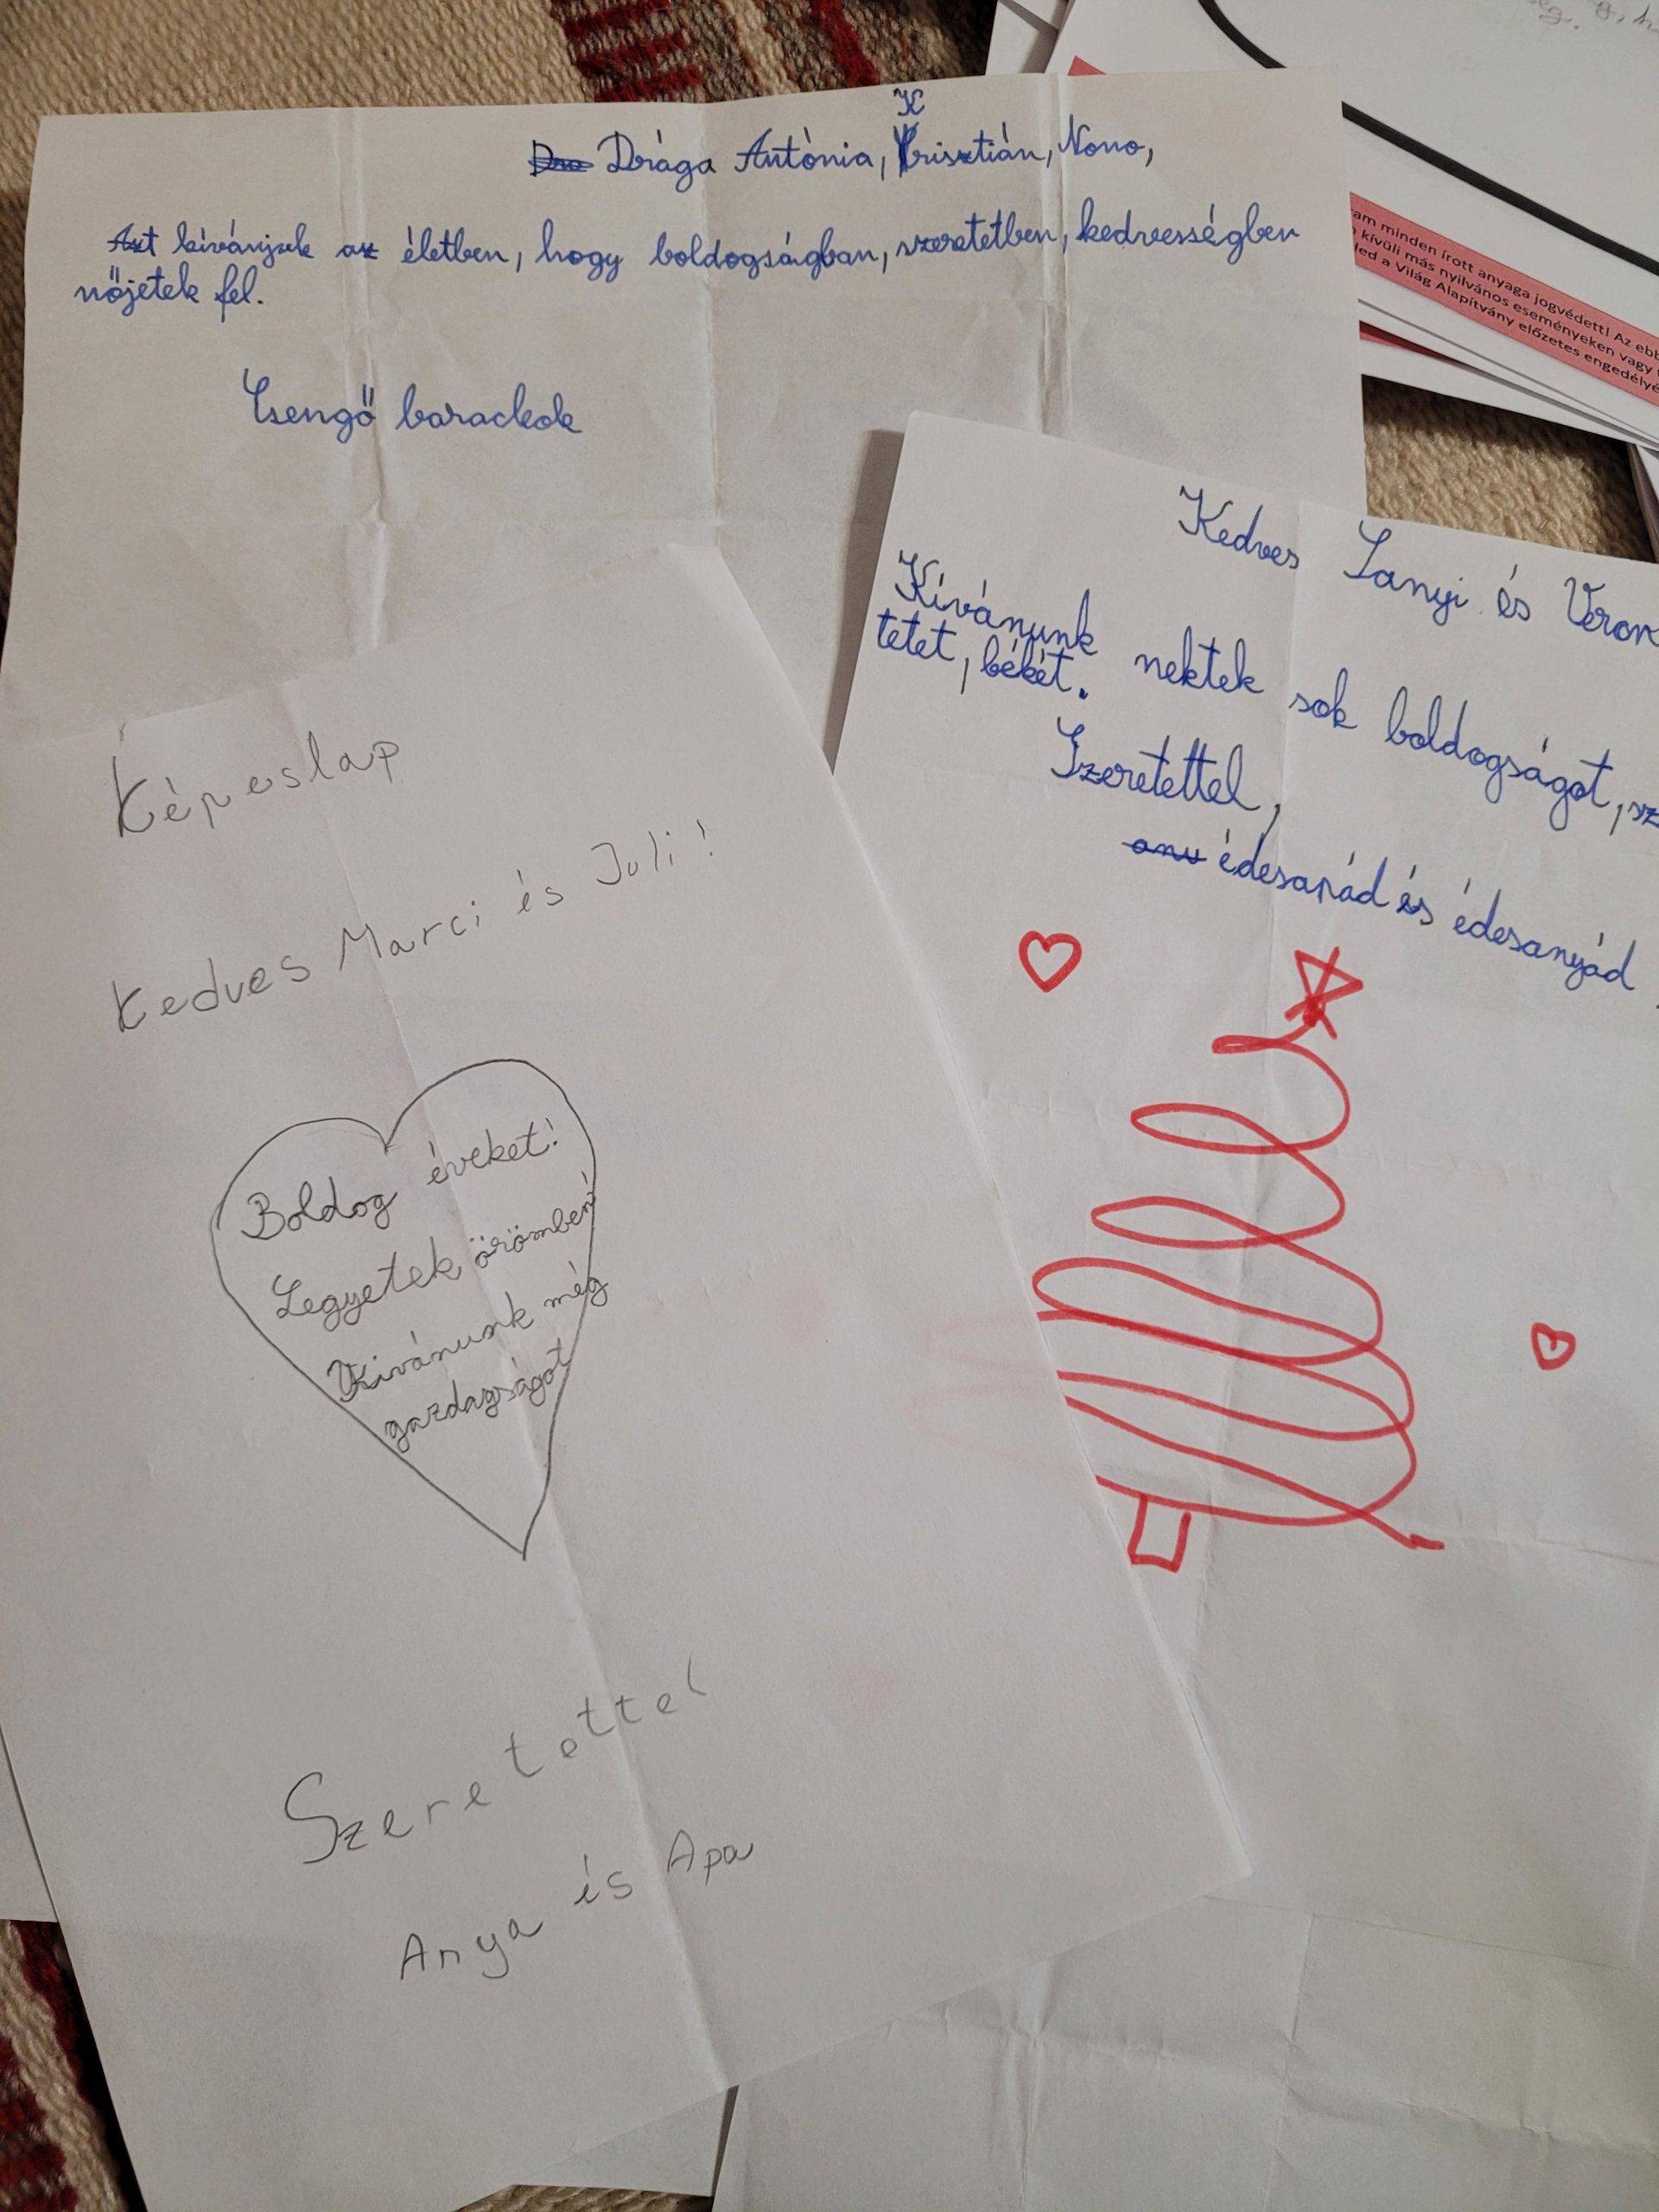 Drága Antónia, Krisztián, Nono,
Azt kívánjuk az életben, hogy boldogságban, szeretetben, kedvességben
nőjetek fel.
Csengő barackok
Kedves Sanyi és Veron
Kívánunk nektek sok boldogságot, sz
tetet, békét.
Szeretettel,
édesapád és édesanyád
Képeslap
Kedves Marci és Juli!
Boldog éveket!
Legyetek örömben!
Kivánunk még
gazdagságot
Szeretettel
Anya és Apa
am minden írott anyaga jogvédett! Az ebb
kívüli más nyilvános eseményeken vagy
ed a Világ Alapítvány előzetes engedélyé